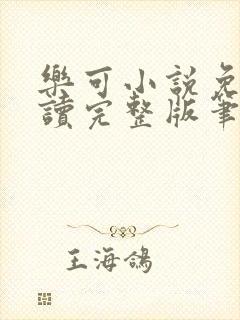 樂可小說免
讀完整版筆
王海鴿